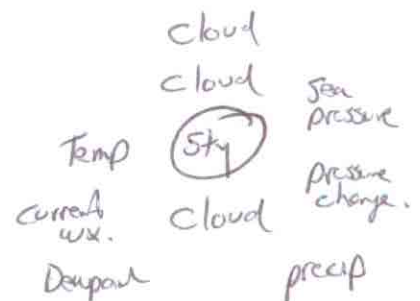 cloud
cloud
Sea
pressure
Temp
Sky
pressure
change.
current
wx.
cloud
Dewpoint
precip